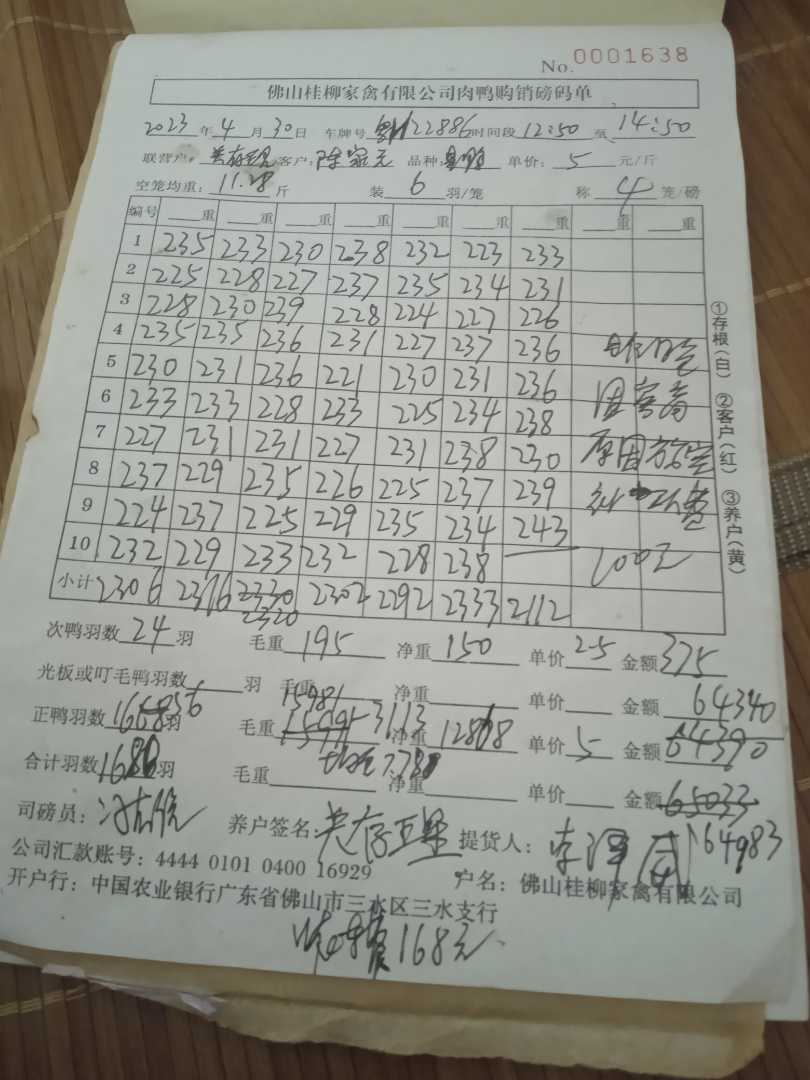 No. 0001638
佛山桂柳家禽有限公司肉鸭购销磅码单
2023年4月30日 车牌号 22886 时间段 12:50 至 14:50
联营户: 客户: 陈家元 品种: 单价: 5 元/斤
空笼均重: 11.28 斤 装 6 羽/笼 称 4 笼/磅
编号 重 重 重 重 重 重 重 重 重
1 235 233 230 238 232 223 233
2 225 228 227 237 235 234 231
3 228 230 239 228 224 227 226
4 235 235 236 231 227 237 236
5 230 231 236 221 230 231 236
6 233 233 228 233 225 234 238
7 227 231 231 227 231 238 230
8 237 229 235 226 225 237 239
9 224 237 225 229 235 234 243
10 232 229 233 232 228 238
小计 2306 2316 2330 2302 2292 2333 2112
2320
100元
①存根(白) ②客户(红) ③养户(黄)
次鸭羽数 24 羽 毛重 195 净重 150 单价 2.5 金额 375
光板或叮毛鸭羽数 羽 毛重 净重 单价 金额 64340
正鸭羽数 1656 羽 毛重 15981 3113 净重 12868 单价 5 金额 64390
合计羽数 1680 羽 毛重 净重 单价 金额 65033
司磅员: 养户签名: 提货人: 64983
公司汇款账号: 4444 0101 0400 16929 户名: 佛山桂柳家禽有限公司
开户行: 中国农业银行广东省佛山市三水区三水支行
168元